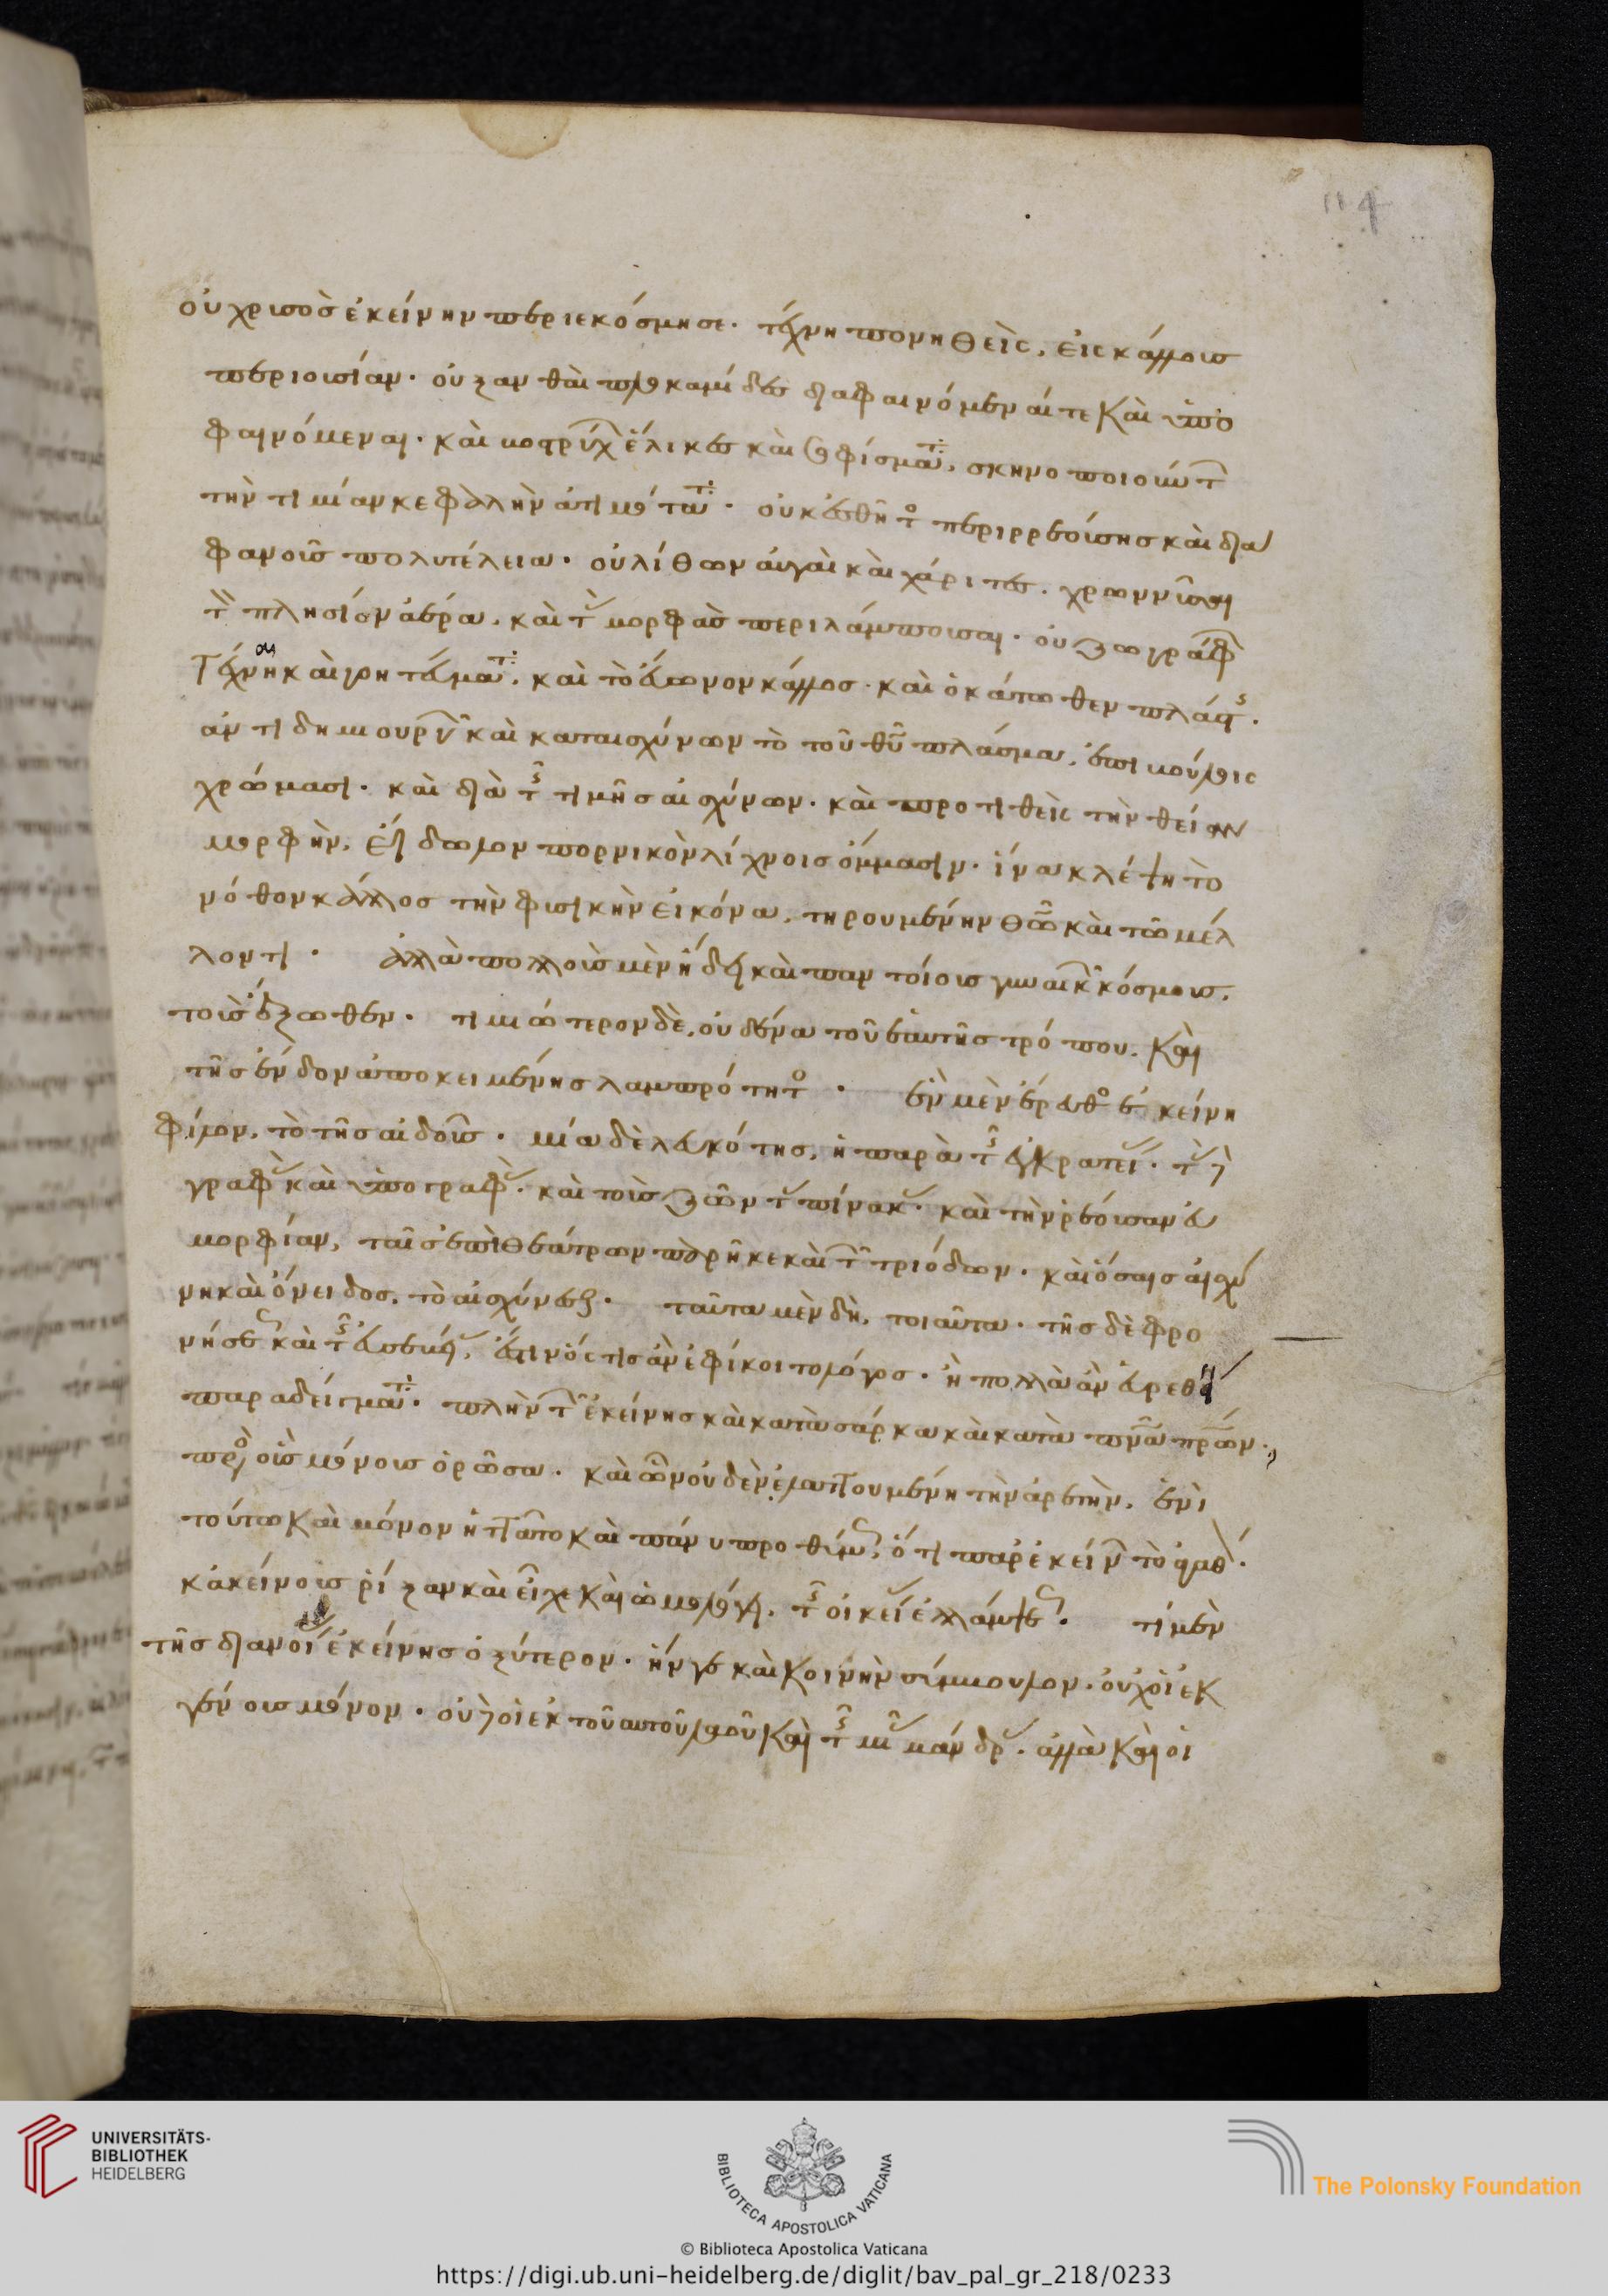 114
οὐ χρυσὸς ἐκείνην περιεκόσμησε· τέχνη πονηθεὶς, εἰς κάλλους
περιουσίαν· οὐ ξανθαὶ πλοκαμίδες διαφαινόμεναί τε καὶ ὑπο
φαινόμεναι· καὶ βοστρύχων ἕλικες καὶ σοφίσματα, σκηνοποιούντων
τὴν τιμίαν κεφαλὴν ἀτιμότατα· οὐκ ἐσθῆτος περιρρεούσης καὶ δια
φανοῦς πολυτέλεια· οὐ λίθων αὐγαὶ καὶ χάριτες· χρωννῦσαι
τὸν πλησίον ἀέρα, καὶ τὰς μορφὰς περιλάμπουσαι· οὐ ζωγράφων
τέχναι καὶ γοητεύματα, καὶ τὸ εὔωνον κάλλος· καὶ ὁ κάτωθεν πλάστης·
ἀντιδημιουργῶν καὶ καταισχύνων τὸ τοῦ θυ πλάσμα, ἐπιβούλοις
χρώμασι· καὶ διὰ τῆς τιμῆς αἰσχύνων· καὶ προτιθεὶς τὴν θείαν
μορφὴν, εἴδωλον πορνικὸν λίχνοις ὄμμασιν· ἵνα κλέψη τὸ
νόθον κάλλος τὴν φυσικὴν εἰκόνα, τηρουμένην θῶ καὶ τῶ μέλ
λοντι· ἀλλὰ πολλοὺς μὲν ἤδει καὶ παντοίους γυναικῶν κόσμους,
τοὺς ἔξωθεν· τιμιώτερον δὲ, οὐδένα τοῦ ἑαυτῆς τρόπου, καὶ
τῆς ἔνδον ἀποκειμένης λαμπρότητος· ἓν μὲν ἔρευθος ἐκείνη
φίλον, τὸ τῆς αἰδοῦς· μία δὲ λευκότης, ἡ παρὰ τῆς ἐγκρατείας· τὰς δὲ
γραφὰς καὶ ὑπογραφὰς· καὶ τοὺς ζῶντας πίνακας· καὶ τὴν ῥέουσαν εὐ
μορφίαν, ταῖς ἐπὶ θεάτρων παρῆκε καὶ τῶν τριόδων· καὶ ὅσαις αἰσχύ
νη καὶ ὄνειδος, τὸ αἰσχύνεσθαι· ταῦτα μὲν δὴ, τοιαῦτα· τῆς δὲ φρο
νήσεως καὶ τῆς εὐσεβείας, ἔστιν ὅστις ἂν ἐφίκοιτο λόγος· ἢ πολλὰ ἂν εὑρεθείη
παραδείγματα· πλὴν τῶν ἐκείνης καὶ κατὰ σάρκα καὶ κατὰ πνα πρων·
πρὸς οὓς μόνους ὁρῶσα· καὶ ὧν οὐδὲν ἐλαττουμένη τὴν ἀρετὴν, ἑνὶ
τούτω καὶ μόνον ἡττᾶτο καὶ πάνυ προθύμως, ὅτι παρ' ἐκείνων τὸ ἀγαθόν·
κἀκείνους ῥίζαν καὶ εἶχε καὶ ὡμολόγει, τῆς οἰκείας ἐλλάμψεως· τί μὲν
τῆς διανοίας ἐκείνης ὀξύτερον· ἥν γε καὶ κοινὴν σύμβουλον· οὐχ οἱ ἐκ
γένους μόνον· οὐδὲ οἱ ἐκ τοῦ αὐτοῦ λαοῦ καὶ τῆς μιᾶς μάνδρας· ἀλλὰ καὶ οἱ
UNIVERSITÄTS-
BIBLIOTHEK
HEIDELBERG
BIBLIOTECA APOSTOLICA VATICANA
The Polonsky Foundation
© Biblioteca Apostolica Vaticana
https://digi.ub.uni-heidelberg.de/diglit/bav_pal_gr_218/0233